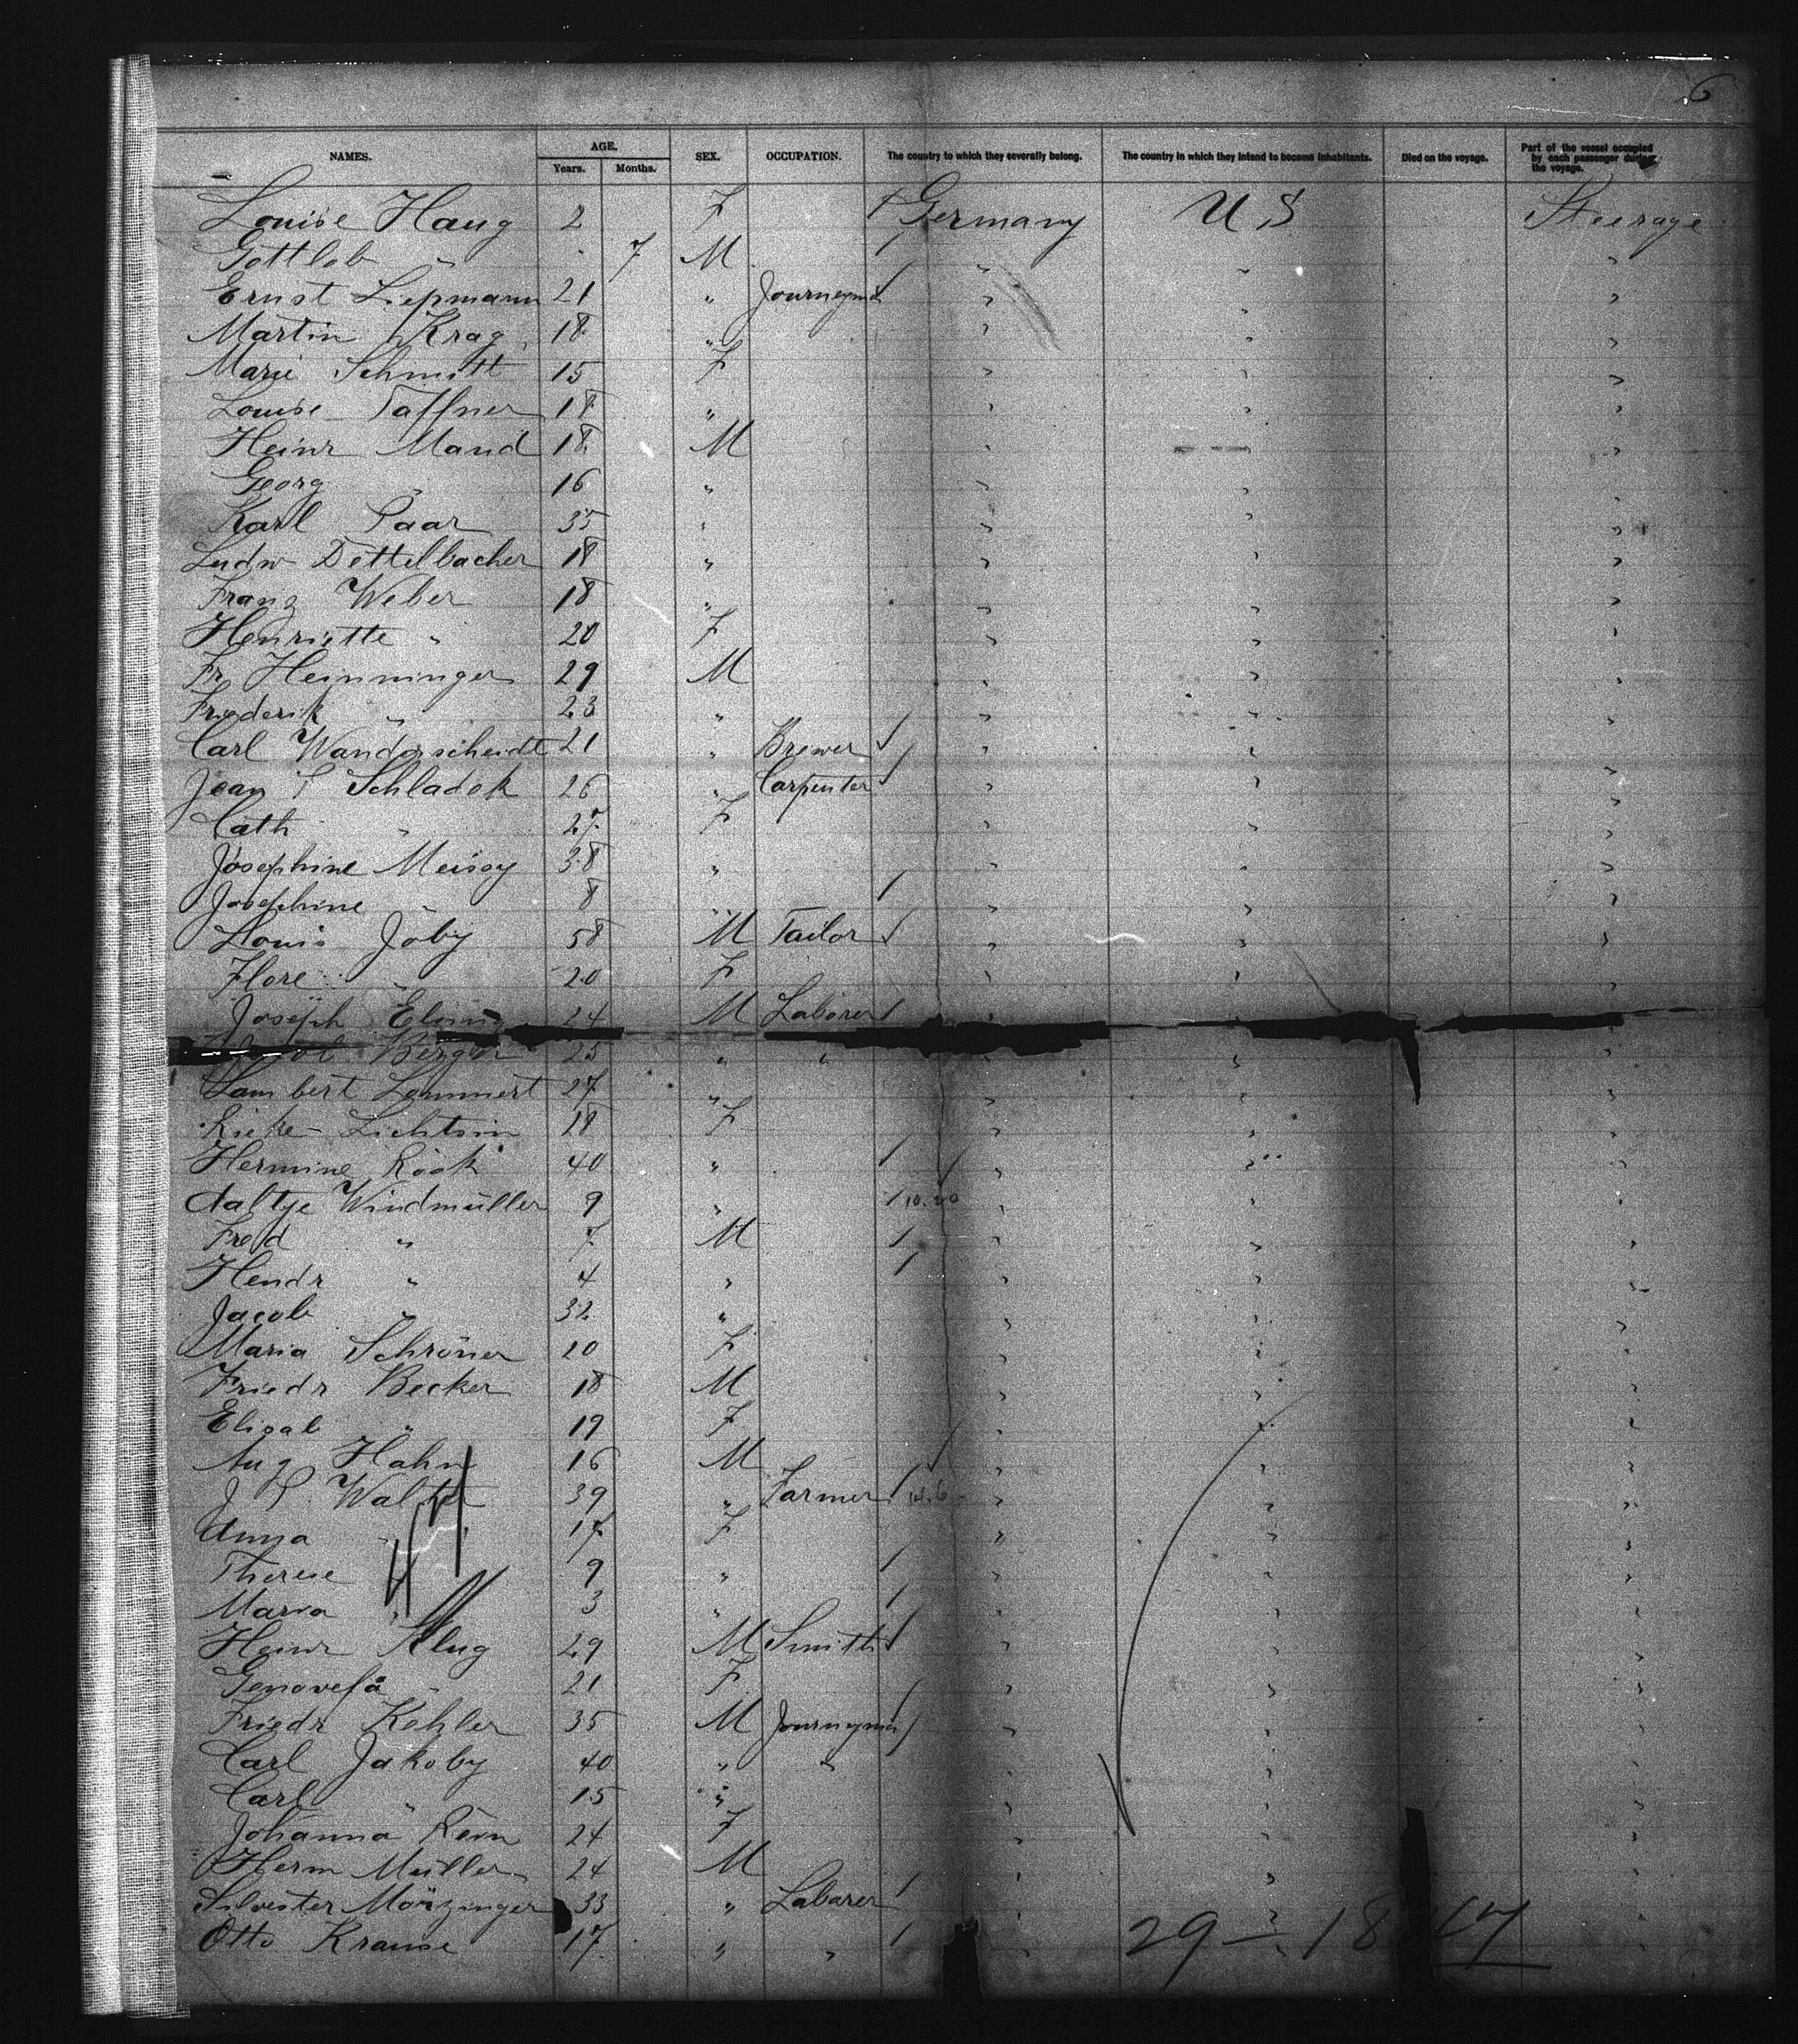 6
NAMES. AGE. Years. Months. SEX. OCCUPATION. The country to which they severally belong. The country in which they intend to become inhabitants. Died on the voyage. Part of the vessel occupied by each passenger during the voyage.
Louise Haug 2 F Germany U S Steerage
Gottlob " - 7 M " " "
Ernst Liepmann 21 " Journeyma " " "
Martin Krag 18 " " " "
Marie Schmitt 15 F " " "
Louise Taffner 18 " " " "
Heinr Mand 18 M " " "
Georg " 16 " " " "
Karl Paar 35 " " " "
Ludw Dettelbacher 18 " " " "
Franz Weber 18 " " " "
Henriette " 20 F " " "
Fr Heinninger 29 M " " "
Friederik " 23 " " " "
Carl Wanderscheidt 21 " Brewer " " "
Jean P Schladek 26 " Carpenter " " "
Cath " 27 F " " "
Josephine Meisoy 38 " " " "
Josephine " 8 " " " "
Louis Joby 58 M Tailor " " "
Flore " 20 F " " "
Joseph 24 M Laborer " " "
Berger 25 " " " "
Lambert Lemmert 27 " " " "
Rieke 18 F " " "
Hermine Röök 40 " " " "
Aaltje Windmüller 9 " 10.20 " " "
Fred " 7 M " " "
Hendr " 4 " " " "
Jacob " 32 " " " "
Maria Schröner 20 F " " "
Friedr Becker 18 M " " "
Elisab " 19 F " " "
Aug Hahn 16 M " " "
J P Walter 39 " Farmer " " "
Anna " 17 F " " "
Therese " 9 " " " "
Maria " 3 " " " "
Heinr Klug 29 M Smith " " "
Genovefa " 21 F " " "
Friedr Kohler 35 M Journeyma " " "
Carl Jakoby 40 " " " " "
Carl " 15 " " " "
Johanna Kern 24 F " " "
Herm Müller 24 M " " "
Silvester Mörzinger 33 " Laborer " " "
Otto Krause 17 " " " " "
29 - 18 17